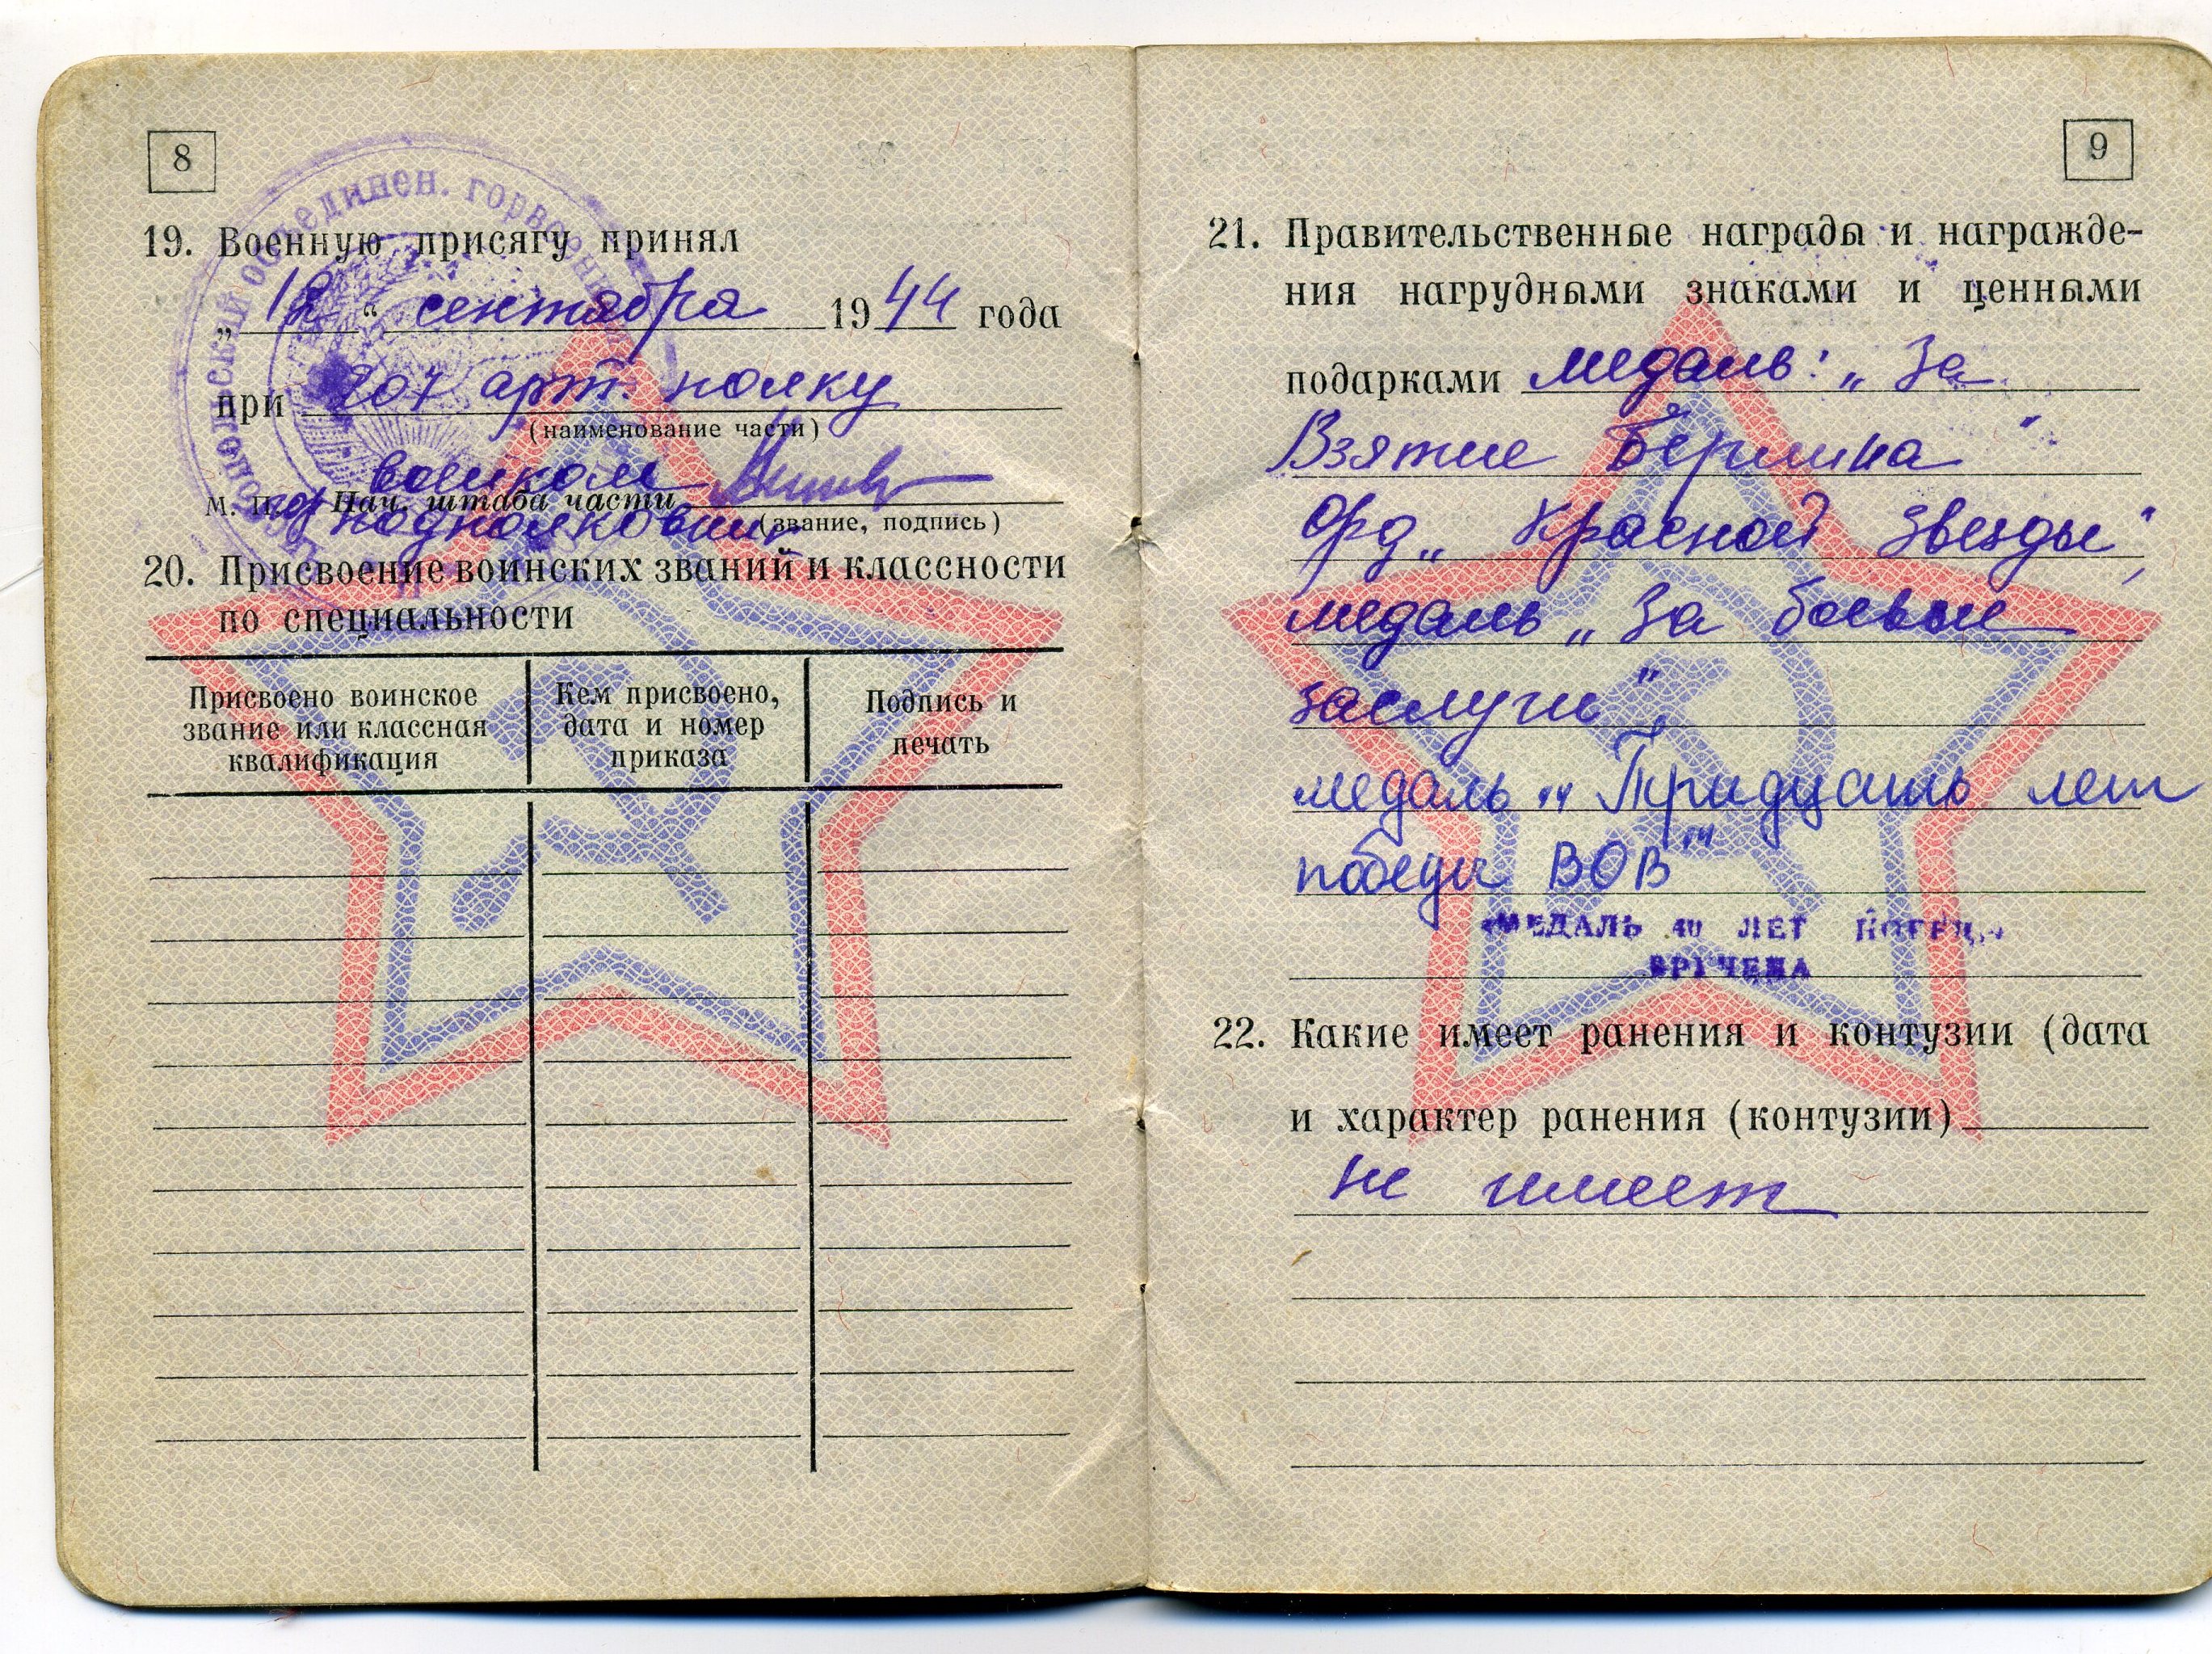 8
19. Военную присягу принял
„ 12 “ сентября 1944 года
при 207 арт. полку
(наименование части)
воиком
М. П. гор Нач. штаба части
подполковник (звание, подпись)
20. Присвоение воинских званий и классности
по специальности
Присвоено воинское звание или классная квалификация
Кем присвоено, дата и номер приказа
Подпись и печать
объединен. горвоен
9
21. Правительственные награды и награжде-
ния нагрудными знаками и ценными
подарками медаль: „За
Взятие Берлина"
Орд „Красной Звезды",
медаль „За боевые
заслуги",
медаль "Тридцать лет
победы ВОВ"
МЕДАЛЬ 40 ЛЕТ
ВРУЧЕНА
22. Какие имеет ранения и контузии (дата
и характер ранения (контузии)
не имеет